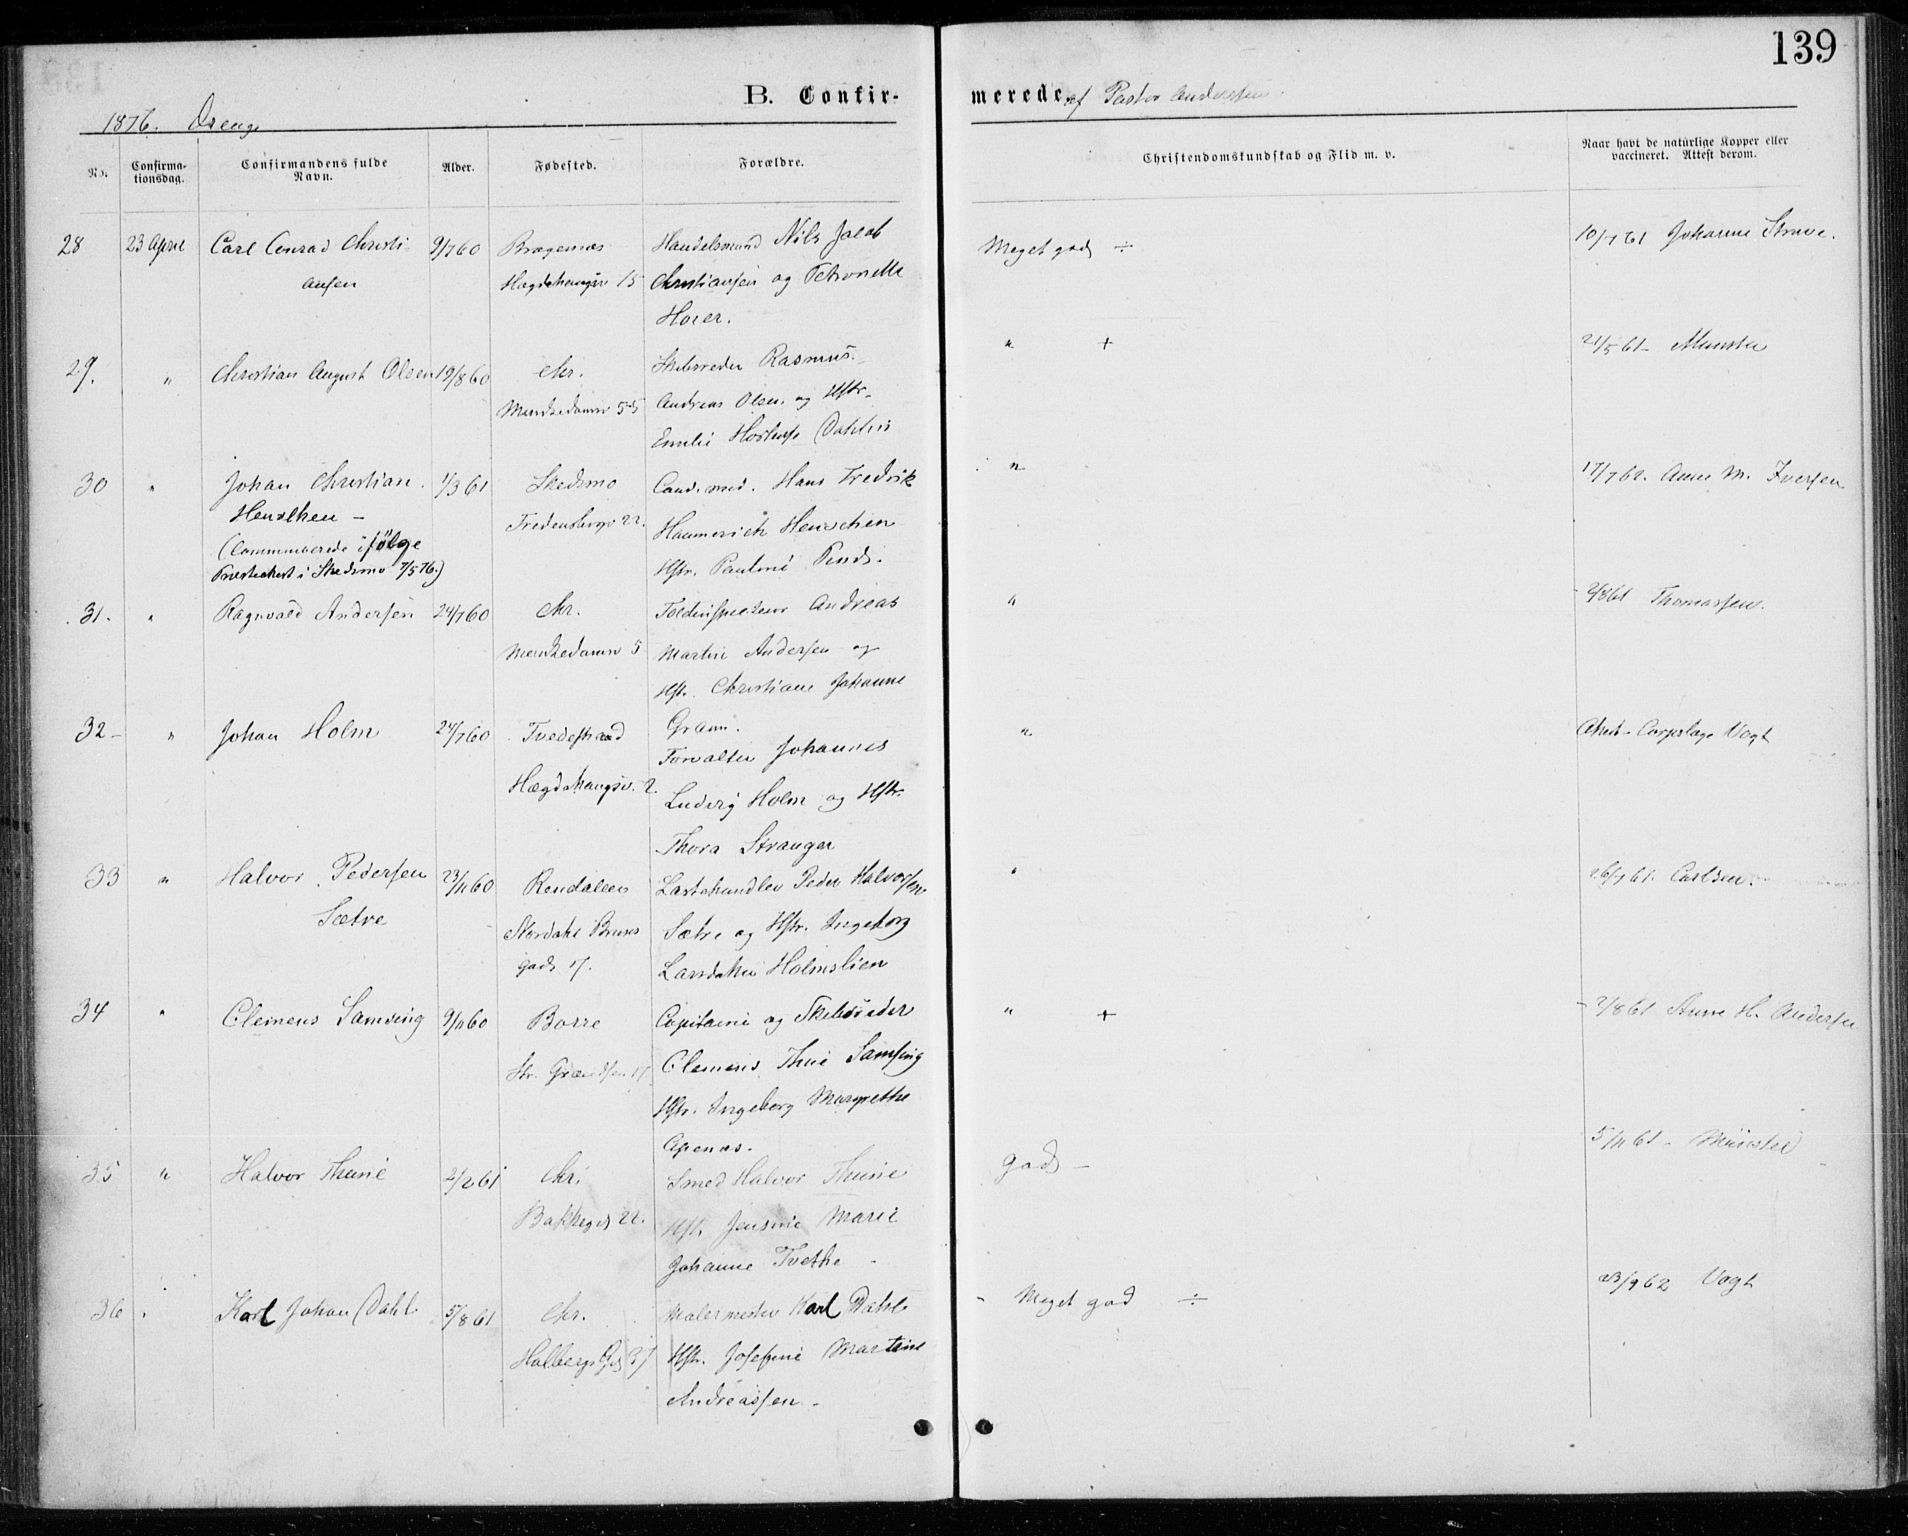 139
B. Confirmerede af Pastor Andersen
1876. Drenge
No.
Confirmationsdag.
Confirmandens fulde Navn.
Alder.
Fødested.
Forældre.
Christendomskundskab og Flid m. v.
Naar havt de naturlige Kopper eller vaccineret. Attest derom.
28 23 April Carl Conrad Christi- 9/7 60 Bragernes Handelsmand Nils Jacob Meget god ÷ 10/7 61 Johanne Struve.
ansen Hægdehaugsv 15 Christiansen og Petronelle
Horer.
29. " Christian August Olsen 19/8 60 Chr. Skibsreder Rasmus " + 21/5 61 - Munster
Munkedamsv 55 Andreas Olsen og Hstr.
Emilie Dahlin
30 " Johan Christian 1/3 61 Skedsmo Cand. med. Hans Fredrik " 17/7 62. Anne M. Iversen
Henschen - Fredensborgv 22. Hammerich Henschen
(Communicerede ifølge Hstr. Pauline
Presteattest i Skedsmo 7/5 76.)
31. " Ragnvald Andersen 24/7 60 Chr. Toldinspecteur Andreas " 2/8 61 Thomassen.
Munkedamsv 5 Martin Andersen og
Hstr. Christiane Johanne
Gram.
32 - " Johan Holm 24/7 60 Tvedestrand Forvalter Johannes " Attest - Corpslæge Vogt
Hægdehaugsv. 2. Ludvig Holm og Hstr.
Thora Stranger
33 " Halvor Pedersen 23/11 60 Rendalen Lastehandler Peder Halvorsen " 26/7 61. Carlsen.
Sætre Nordahl Bruns Sætre og Hstr. Ingeborg
gade 17. Larsdatter Holmslien
34 " Clemens Samsing 9/11 60 Borre Capitaine og Skibsreder " + 2/8 61 Anne H. Andersen
Str. Grændsen 17 Clemens Thue Samsing
Hstr. Ingeborg Margrethe
Apenæs.
35 " Halvor Thune 2/2 61 Chr. Smed Halvor Thune god - 5/11 61 - Münster
Bakkegd 22. Hstr. Jensine Marie
Johanne Tvethe -
36 " Karl Johan Dahl 5/8 61 Chr. Malermester Karl Dahl - Meget god ÷ 23/9 62 Vogt
Holbergs Gd 37 Hstr. Josefine Martine
Andreassen -